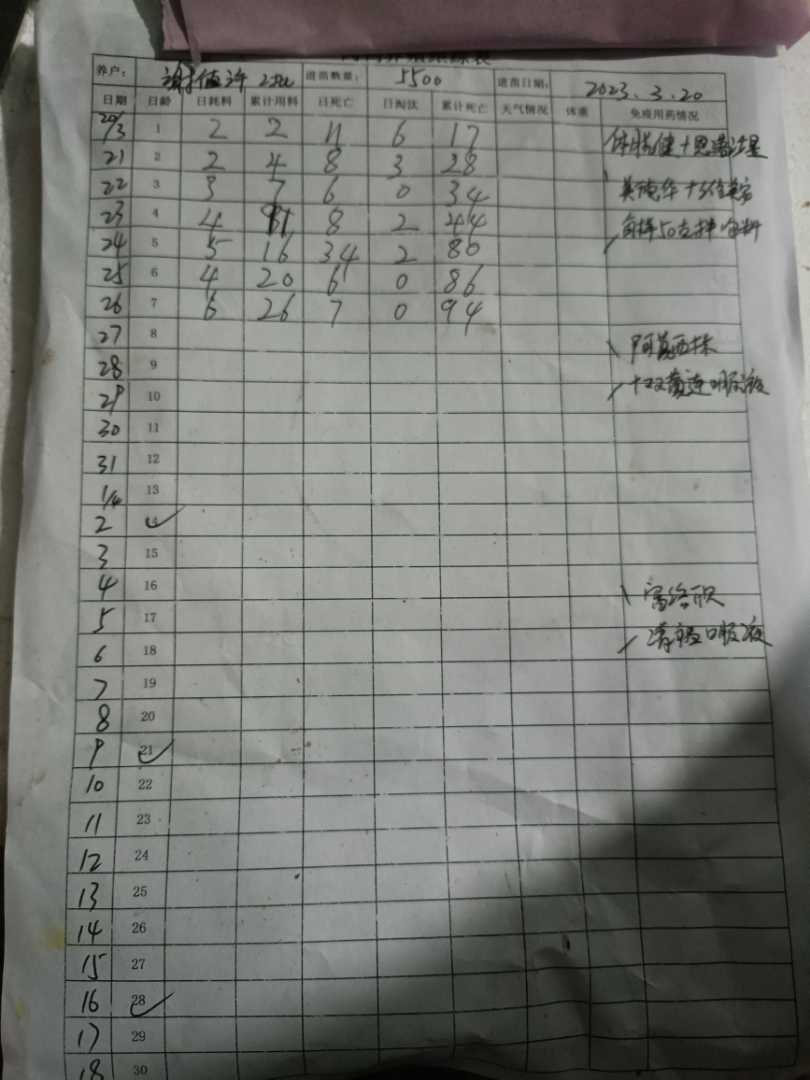 养户： 进苗数量： 5500 进苗日期： 2023.3.20
日期 日龄 日耗料 累计用料 日死亡 日淘汰 累计死亡 天气情况 体重 免疫用药情况
20/3 1 2 2 11 6 17
21 2 2 4 8 3 28
22 3 3 7 6 0 34
23 4 4 11 8 2 44
24 5 5 16 34 2 80
25 6 4 20 6 0 86
26 7 6 26 7 0 94
27 8 阿莫西林
28 9 口服液
29 10
30 11
31 12
1/4 13
2 14
3 15
4 16
5 17
6 18 口服液
7 19
8 20
9 21
10 22
11 23
12 24
13 25
14 26
15 27
16 28
17 29
18 30